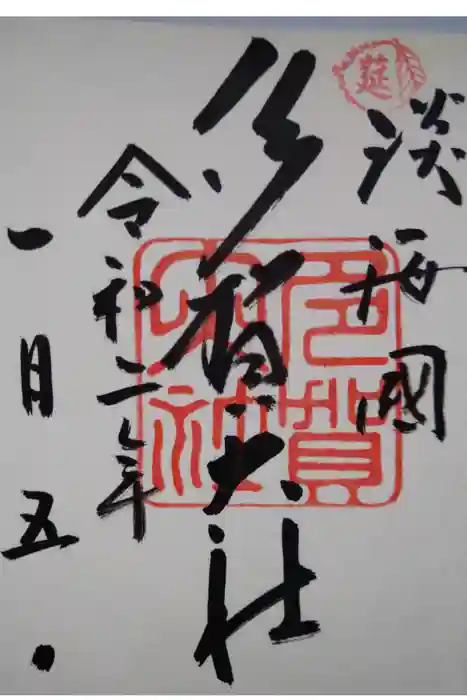 莚
淡海國
多賀大社
多賀大社
令和二年
一月五